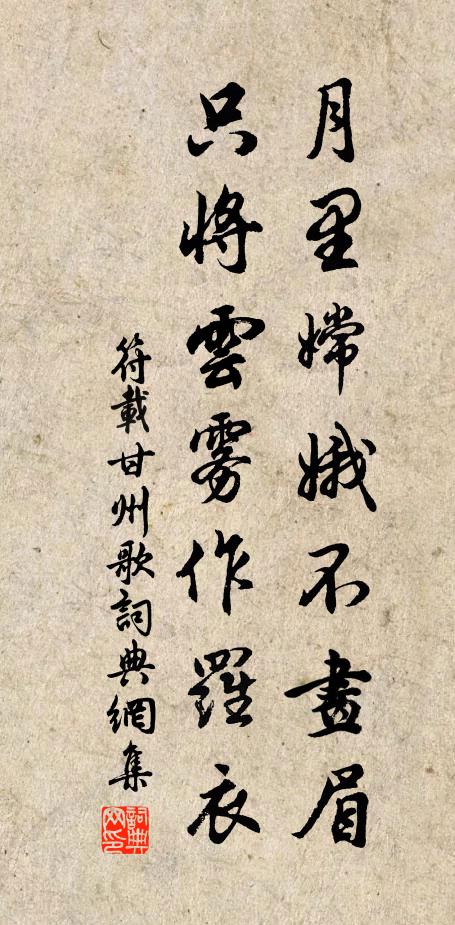 月里嫦娥不畫眉
只將雲霧作羅衣
符載甘州歌詞典網集
詞典網印